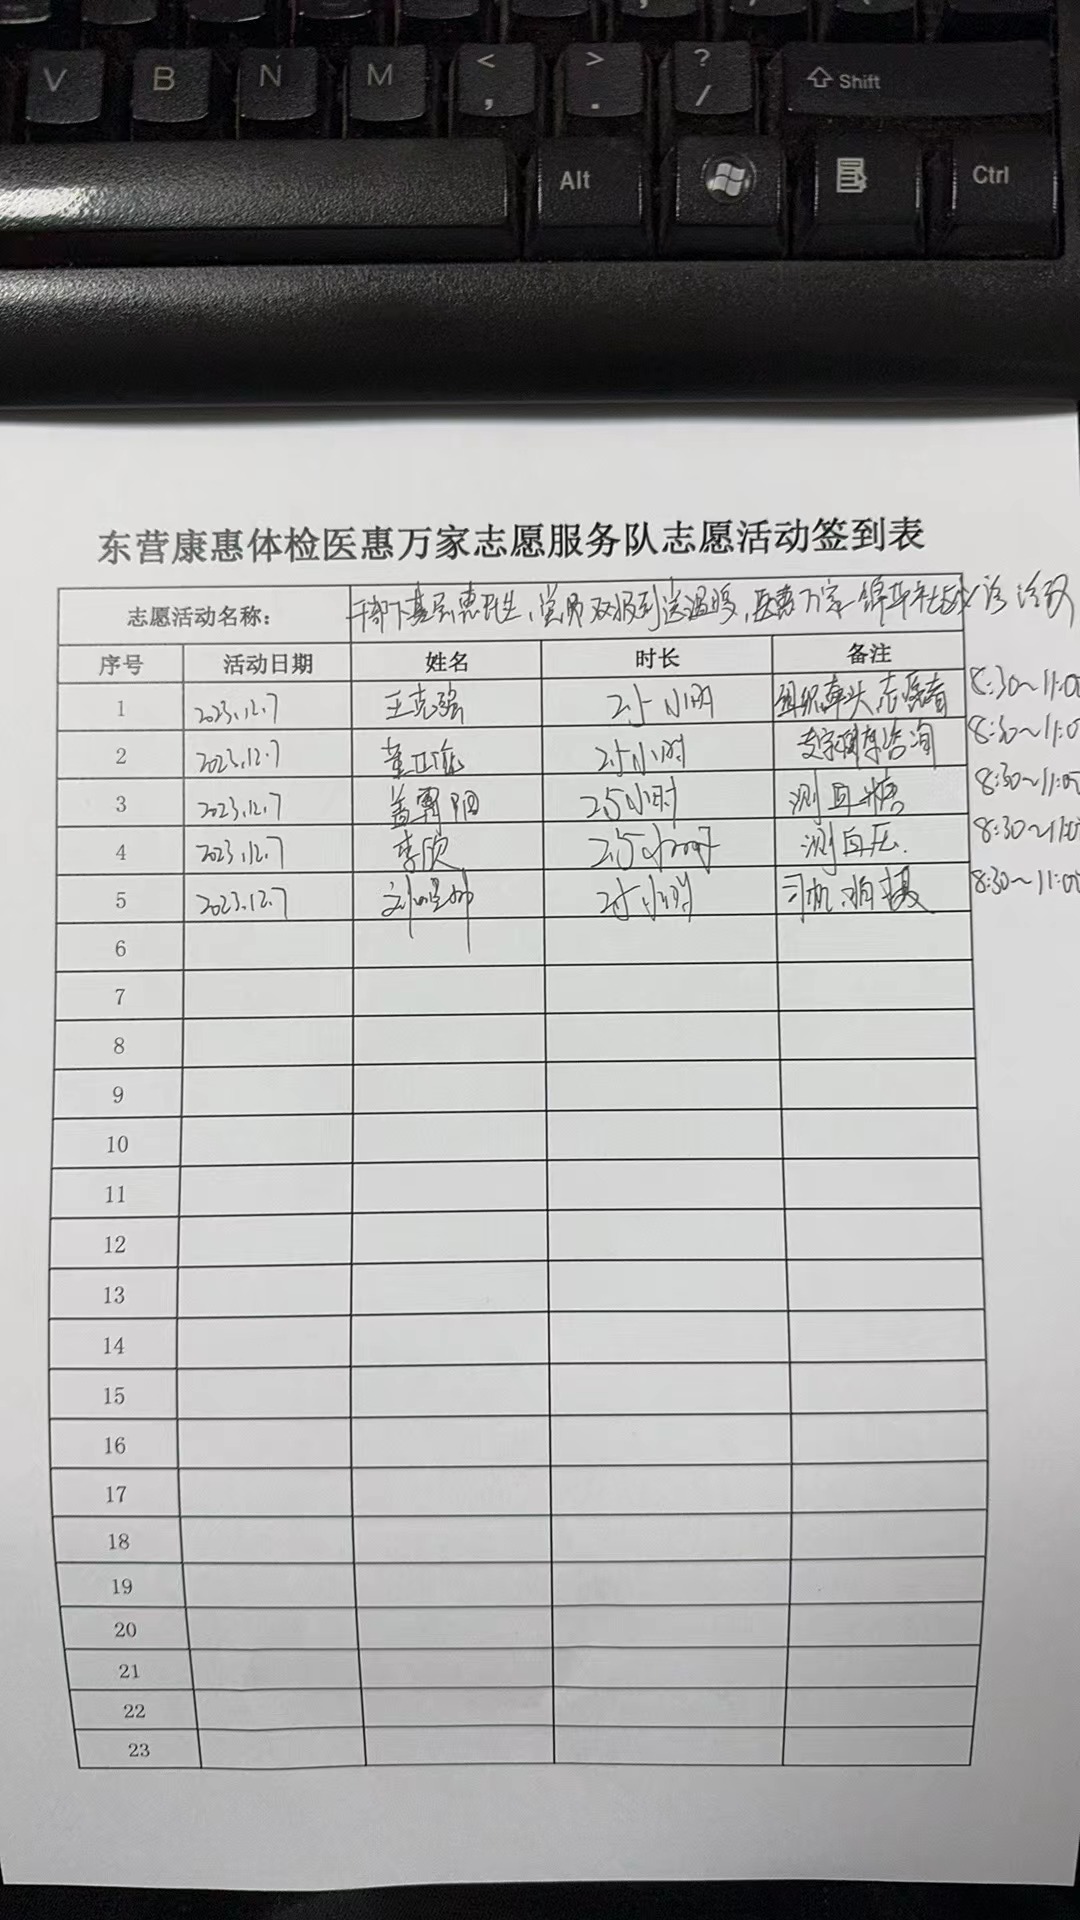 V B N M < , > . ? / Shift
Alt Ctrl
东营康惠体检医惠万家志愿服务队志愿活动签到表
志愿活动名称: 干部下基层惠民生,党员双报到送温暖,医惠万家-锦华社区义诊
序号 活动日期 姓名 时长 备注
1 2023.12.7 王克强 2.5小时 组织牵头志愿者 8:30~11:00
2 2023.12.7 2.5小时 咨询 8:30~11:00
3 2023.12.7 2.5小时 测血糖 8:30~11:00
4 2023.12.7 李欣 2.5小时 测血压. 8:30~11:00
5 2023.12.7 2.5小时 司机、拍摄 8:30~11:00
6
7
8
9
10
11
12
13
14
15
16
17
18
19
20
21
22
23